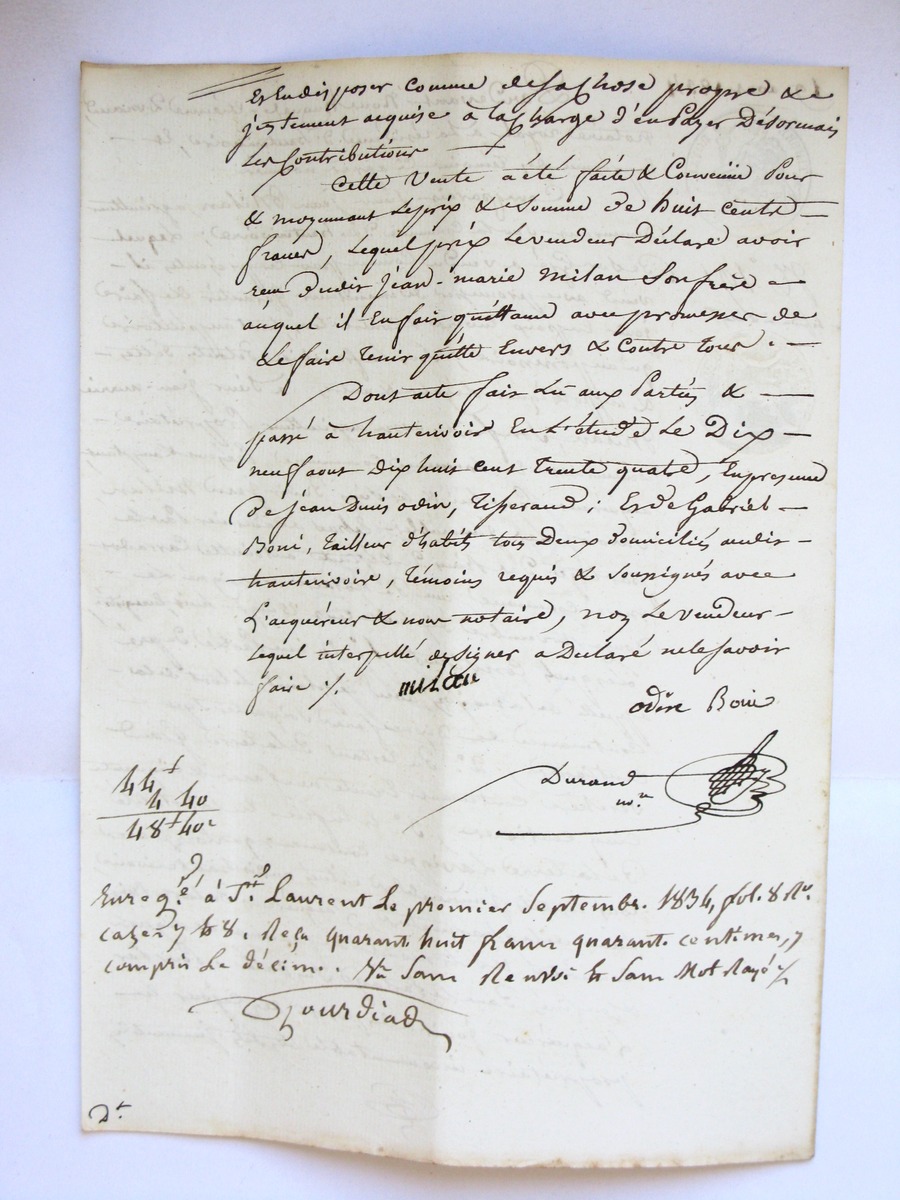 et en disposer comme de sa chose propre &
justement acquise à la charge d'en payer désormais
les Contributions
Cette Vente a été faite & Convenue Pour
& moyennant le prix & somme de huit cents
francs, lequel prix le vendeur Déclare avoir
reçu dudit Jean-marie milan son frère
auquel il en fait quittance avec promesses de
le faire tenir quitte Envers & Contre tous.
Dont acte fait Lu aux Parties &
passé à hauterivoire En L'étude Le Dix
neuf aout dix huit cent trente quatre, En présence
De Jean Denis odin, Tisserand; Et de Gabriel
Boni, tailleur d'habits tous Deux domiciliés audit
hauterivoire, témoins requis & soussignés avec
L'acquéreur & nous notaire, non le vendeur
lequel interpellé de signer a Déclaré ne le savoir
faire ./.
milan
odin Boni
Durand
no.re
44f
4 40
48f 40c
Enregé. à St. Laurent le premier Septembr. 1834, fol. 8 Ro.
cases 7 & 8. Reçu quarant. huit francs quarant. centimes, y
compris le décim. . Vu Sans Renvoi & Sans Mot Rayé ./.
Dt.